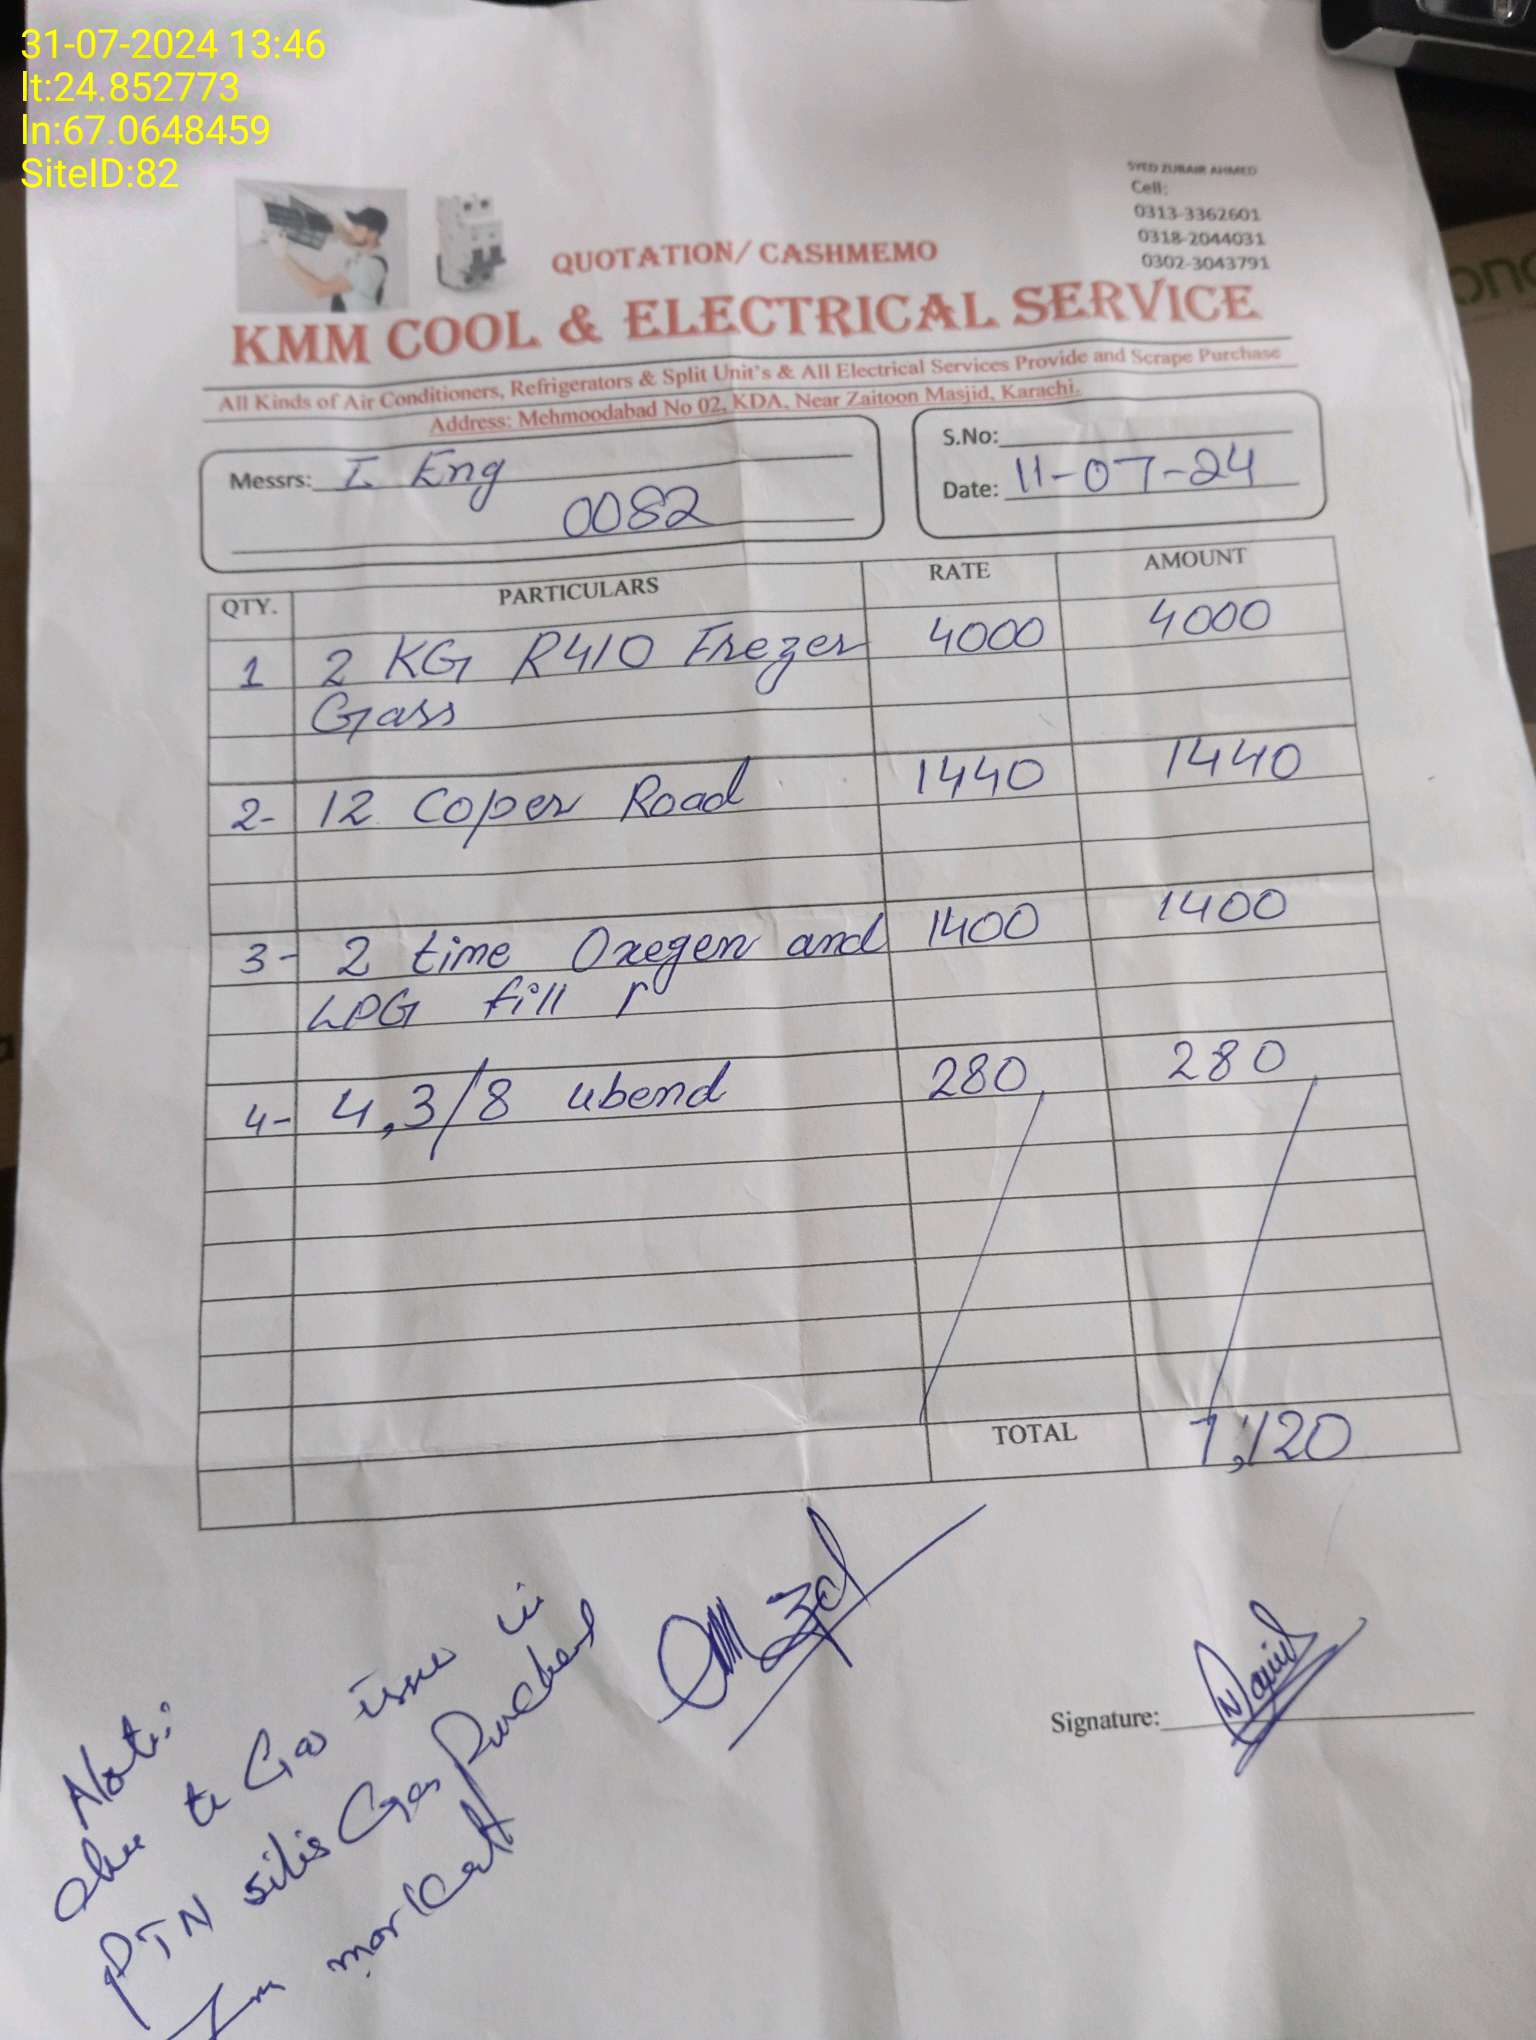 31-07-2024 13:46
lt:24.852773
ln:67.0648459
SiteID:82
SYED ZUBAIR AHMED
Cell:
0313-3362601
0318-2044031
0302-3043791
QUOTATION/ CASHMEMO
KMM COOL & ELECTRICAL SERVICE
All Kinds of Air Conditioners, Refrigerators & Split Unit's & All Electrical Services Provide and Scrape Purchase
Address: Mehmoodabad No 02, KDA, Near Zaitoon Masjid, Karachi.
Messrs: I. Eng
0082
S.No:
Date: 11-07-24
QTY. PARTICULARS RATE AMOUNT
1 2 KG R410 Frezer 4000 4000
Gass
2- 12 Coper Road 1440 1440
3- 2 time Oxegen and 1400 1400
LPG fill
4- 4,3/8 ubend 280 280
TOTAL 7,120
Note:
due to Gas issue in
PTN sites Gas Purchase
market
Signature: